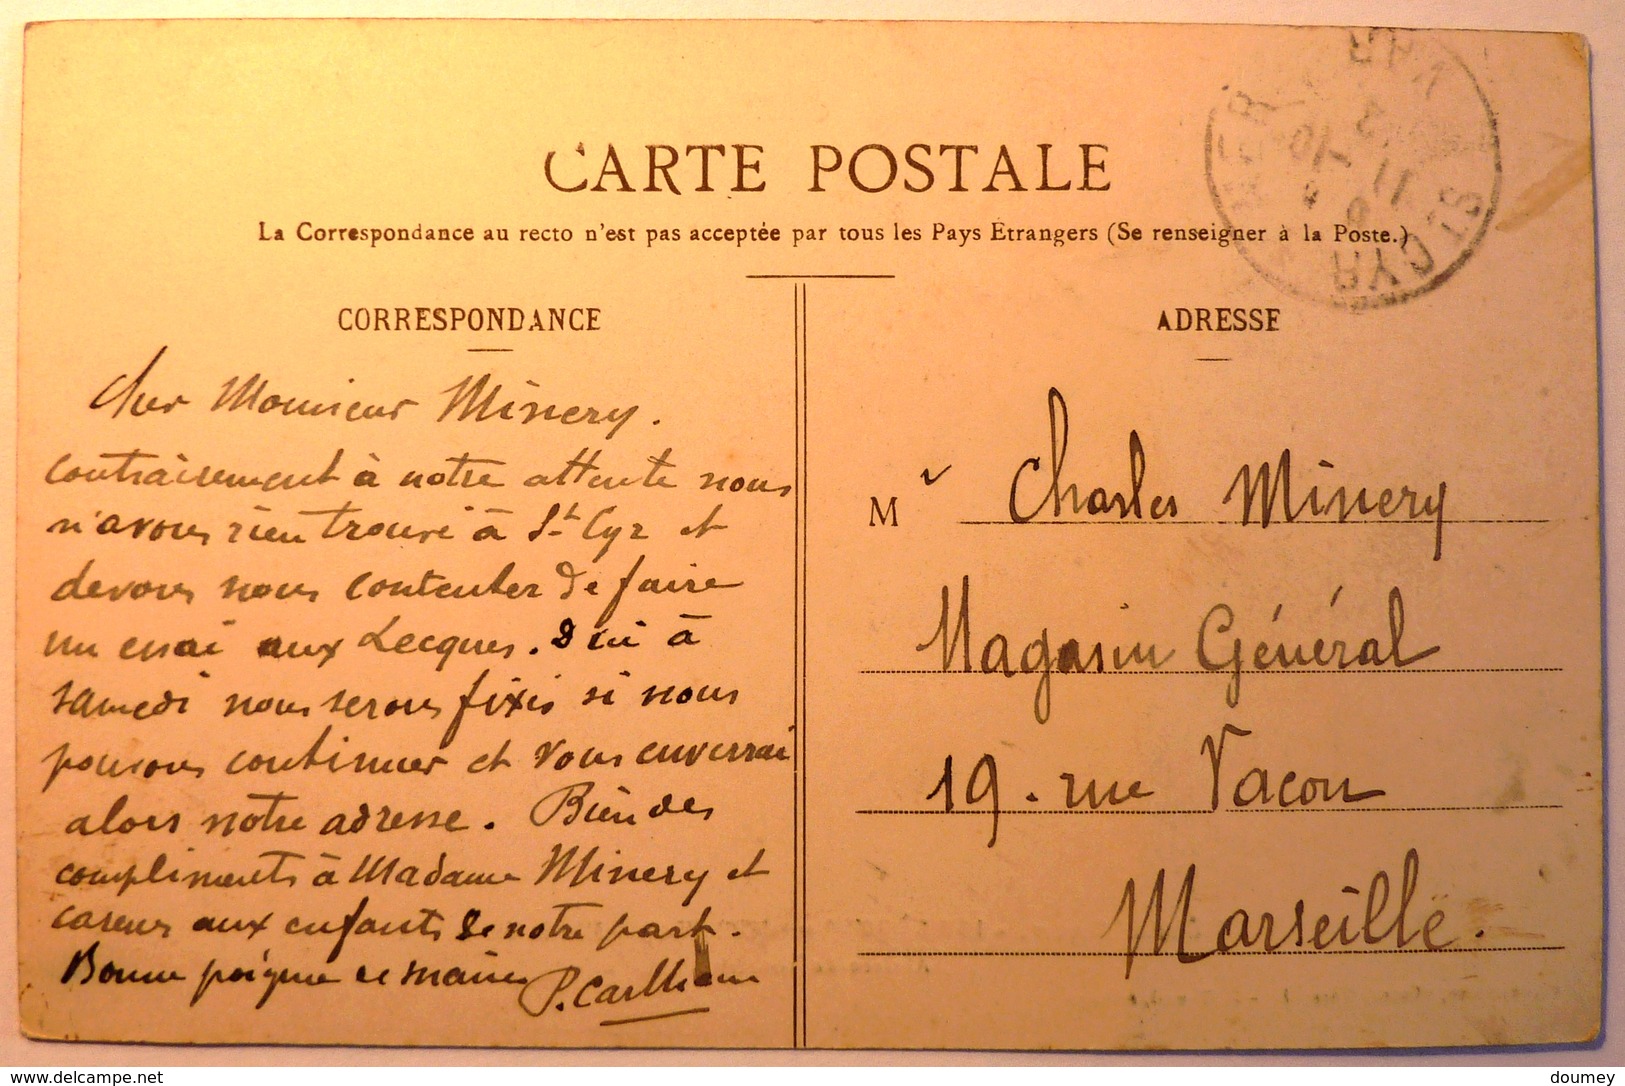 CARTE POSTALE
La Correspondance au recto n'est pas acceptée par tous les Pays Étrangers (Se renseigner à la Poste.)
CORRESPONDANCE
Cher Monsieur Minery.
contrairement à notre attente nous
n'avons rien trouvé à St Cyr et
devons nous contenter de faire
un essai aux Lecques. D'ici à
samedi nous serons fixés si nous
pouvons continuer et vous enverrai
alors notre adresse. Bien des
compliments à Madame Minery et
caresses aux enfants de notre part.
Bonne poignée de mains P. Carlhian
ADRESSE
M r Charles Minery
Magasin Général
19. rue Vacon
Marseille.
ST CYR
VAR
doumey